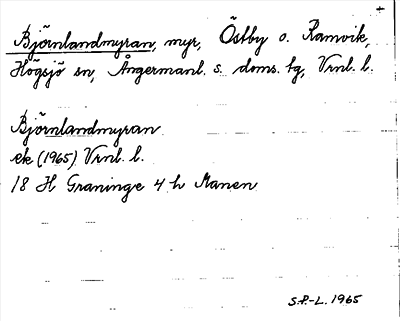 Björnlandmyran, myr, Östby o. Ramvik,
Högsjö sn, Ångermanl. s. doms. tg, Vrnl. l.
Björnlandmyran
ek (1965) Vrnl. l.
18 H Graninge 4 h Manen
S.P.-L. 1965